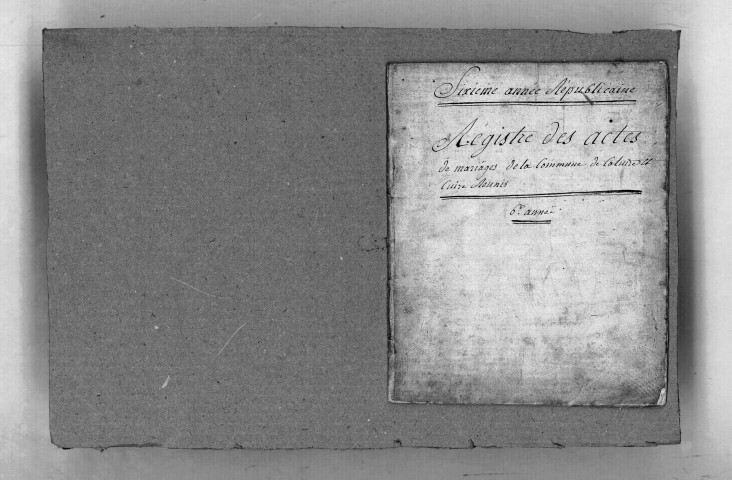 Sixieme année Républicaine
Régistre des actes
de mariages de la Commune de Caluire et
Cuire Réunis
6.e année